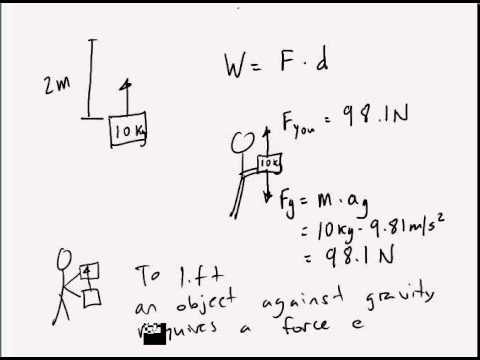 2m
10Kg
W = F · d
F you = 98.1N
10k
Fg = m · ag
= 10kg · 9.81m/s²
= 98.1 N
To lift
an object against gravity
requires a force e